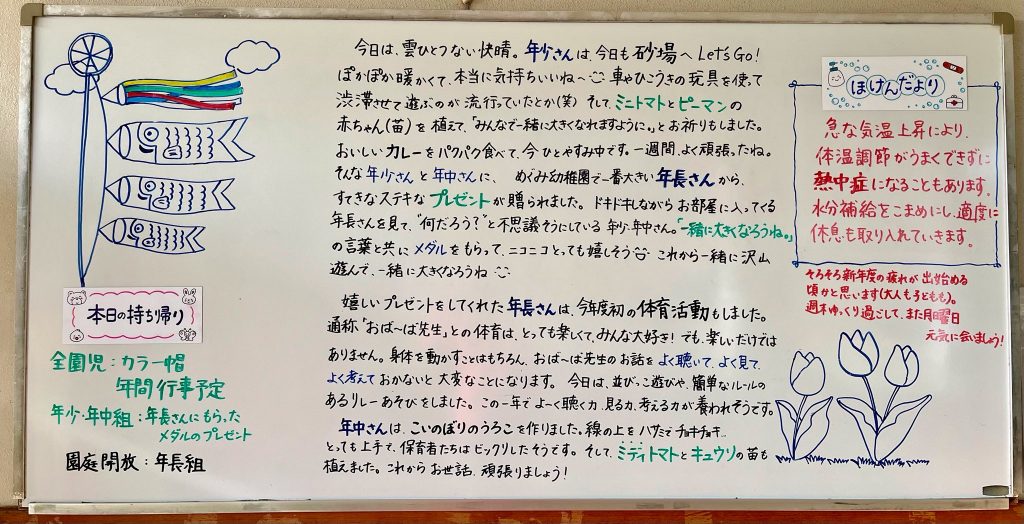 今日は、雲ひとつない快晴。年少さんは、今日も砂場へLet's Go!
ぽかぽか暖かくて、本当に気持ちいいね〜 車やひこうきの玩具を使って
渋滞させて遊ぶのが流行っていたとか(笑) そして、ミニトマトとピーマンの
赤ちゃん(苗)を植えて、「みんなで一緒に大きくなれますように。」とお祈りもしました。
おいしいカレーをパクパク食べて、今ひとやすみ中です。一週間、よく頑張ったね。
そんな年少さんと年中さんに、めぐみ幼稚園で一番大きい年長さんから、
すてきなステキなプレゼントが贈られました。ドキドキしながらお部屋に入ってくる
年長さんを見て、"何だろう?"と不思議そうにしている年少・年中さん。「一緒に大きくなろうね。」
の言葉と共にメダルをもらって、ニコニコとっても嬉しそう これから一緒に沢山
遊んで、一緒に大きくなろうね
嬉しいプレゼントをしてくれた年長さんは、今年度初の体育活動もしました。
通称「おば〜ば先生」との体育は、とっても楽しくて、みんな大好き! でも、楽しいだけでは
ありません。身体を動かすことはもちろん、おば〜ば先生のお話をよく聴いて、よく見て、
よく考えておかないと大変なことになります。今日は、並びっこ遊びや、簡単なルールの
あるリレーあそびをしました。この一年でよ〜く聴く力、見る力、考える力が養われそうです。
年中さんは、こいのぼりのうろこを作りました。線の上をハサミでチョキチョキ…
とっても上手で、保育者たちはビックリしたそうです。そして、ミディトマトとキュウリの苗も
植えました。これからお世話、頑張りましょう!
本日の持ち帰り
全園児:カラー帽
年間行事予定
年少・年中組:年長さんにもらった
メダルのプレゼント
園庭開放:年長組
ほけんだより
急な気温上昇により、
体温調節がうまくできずに
熱中症になることもあります。
水分補給をこまめにし、適度に
休息も取り入れていきます。
そろそろ新年度の疲れが出始める
頃かと思います(大人も子どもも)。
週末ゆっくり過ごして、また月曜日
元気に会いましょう!